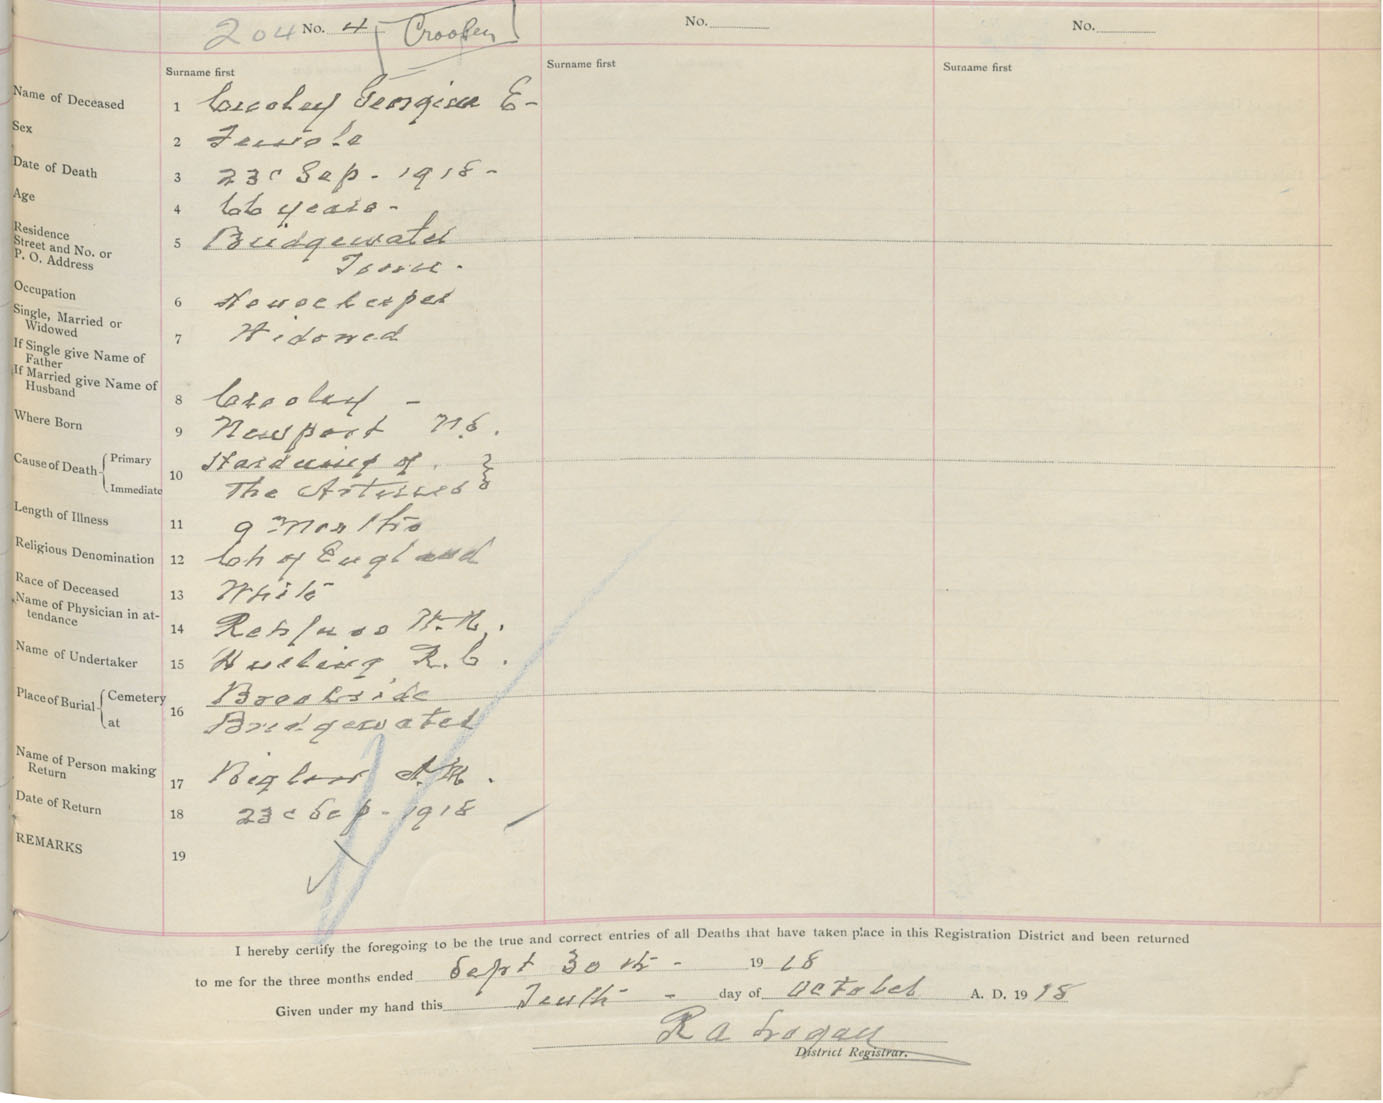 204 No. 4 Crooken No. No.
Surname first Surname first Surname first
Name of Deceased 1 Georgina E-
Sex 2 Female
Date of Death 3 23d Sep - 1918 -
Age 4 66 years -
Residence
Street and No. or
P. O. Address
5 Bridgewater
Town -
Occupation 6 Housekeeper
Single, Married or
Widowed
7 Widowed
If Single give Name of
Father
If Married give Name of
Husband
8 -
Where Born 9 Newport N.S.
Cause of Death { Primary
Immediate
10 Hardening of
The Arteries
Length of Illness 11 9 Months
Religious Denomination 12 Ch of England
Race of Deceased 13 White
Name of Physician in at-
tendance
14 Rehfuss W.N.
Name of Undertaker 15 R.C.
Place of Burial { Cemetery
at
16 Brookside
Bridgewater
Name of Person making
Return
17
Date of Return 18 23d Sep - 1918
REMARKS 19
I hereby certify the foregoing to be the true and correct entries of all Deaths that have taken place in this Registration District and been returned
to me for the three months ended Sept 30th - 19 18
Given under my hand this Tenth - day of October A. D. 19 18
R A Logan
District Registrar.